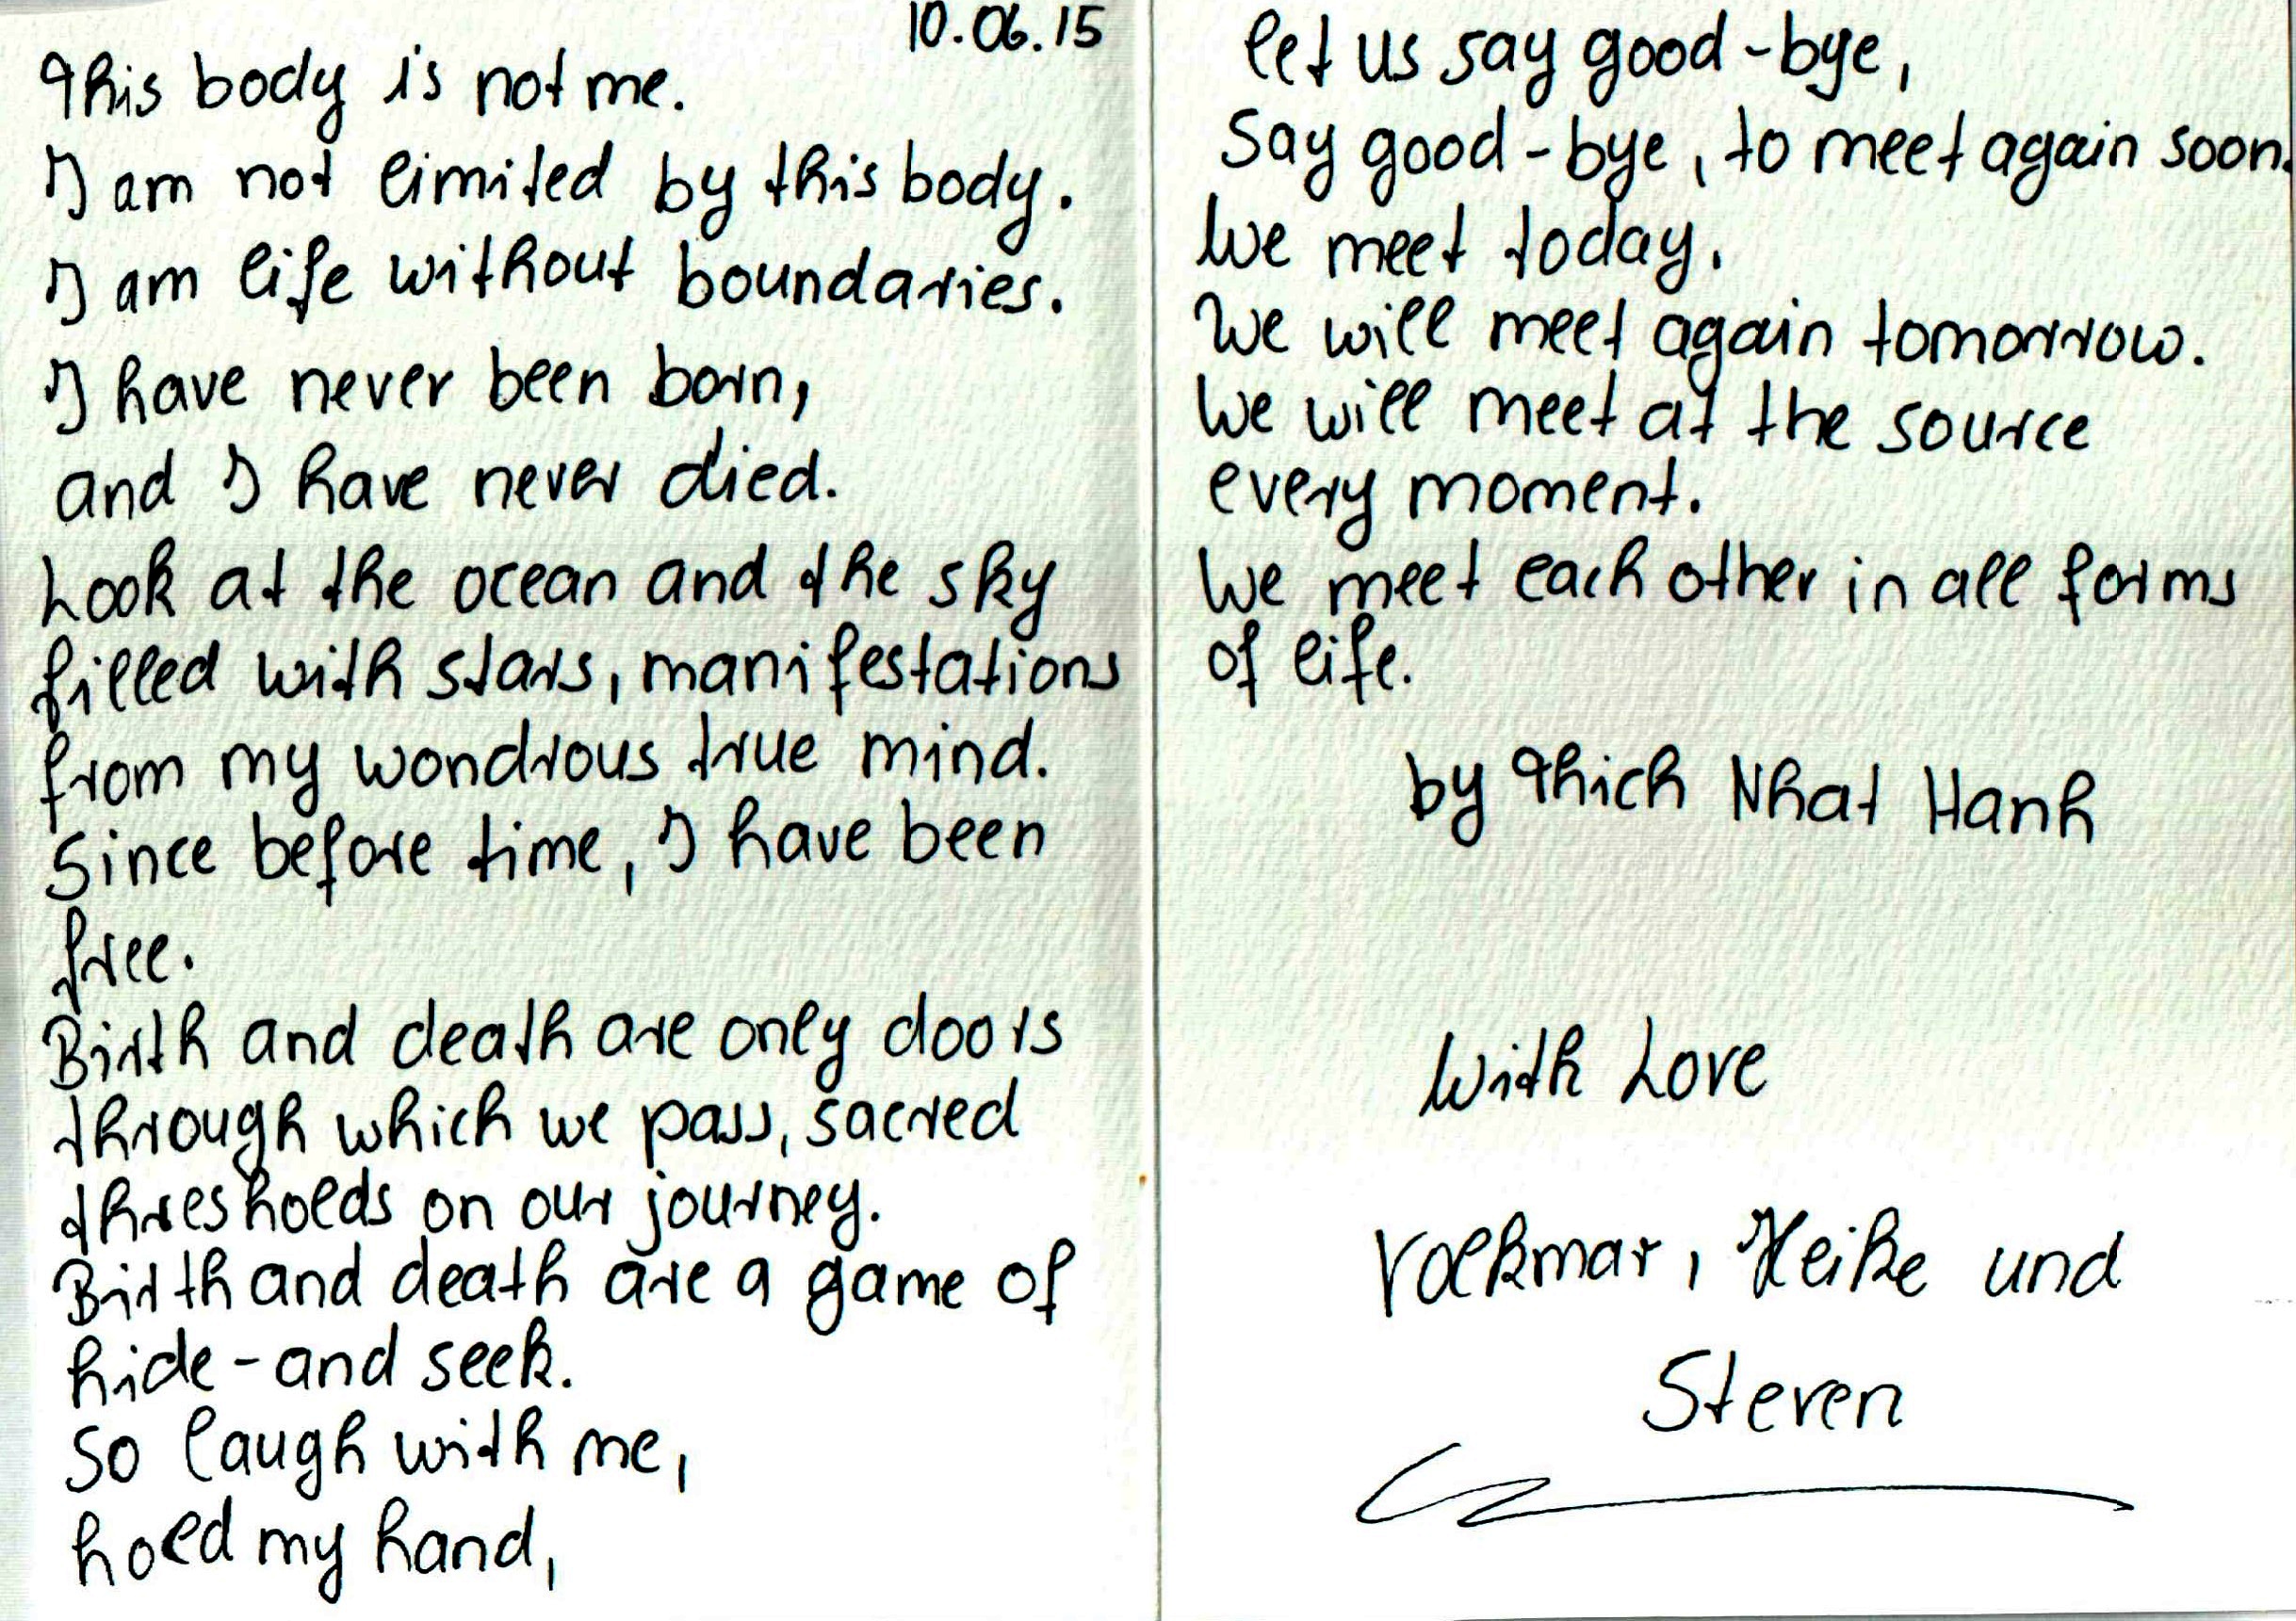 10.06.15
This body is not me.
I am not limited by this body.
I am life without boundaries.
I have never been born,
and I have never died.
Look at the ocean and the sky
filled with stars, manifestations
from my wondrous true mind.
Since before time, I have been
free.
Birth and death are only doors
through which we pass, sacred
thresholds on our journey.
Birth and death are a game of
hide-and seek.
So laugh with me,
hold my hand,
let us say good-bye,
Say good-bye, to meet again soon.
We meet today.
We will meet again tomorrow.
We will meet at the source
every moment.
We meet each other in all forms
of life.
by Thich Nhat Hanh
With Love
Volkmar, Heike und
Steven